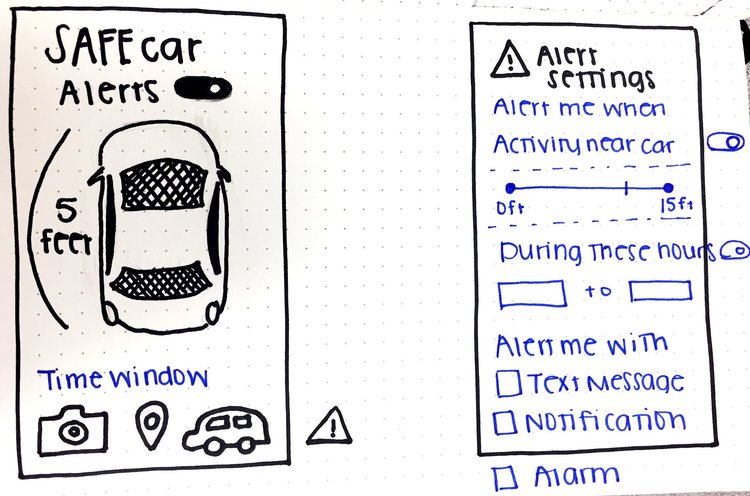 SAFE car
Alerts
5
feet
Time window
! Alert
settings
Alert me when
Activity near car
0ft 15ft
During these hours
to
Alert me with
Text Message
Notification
Alarm